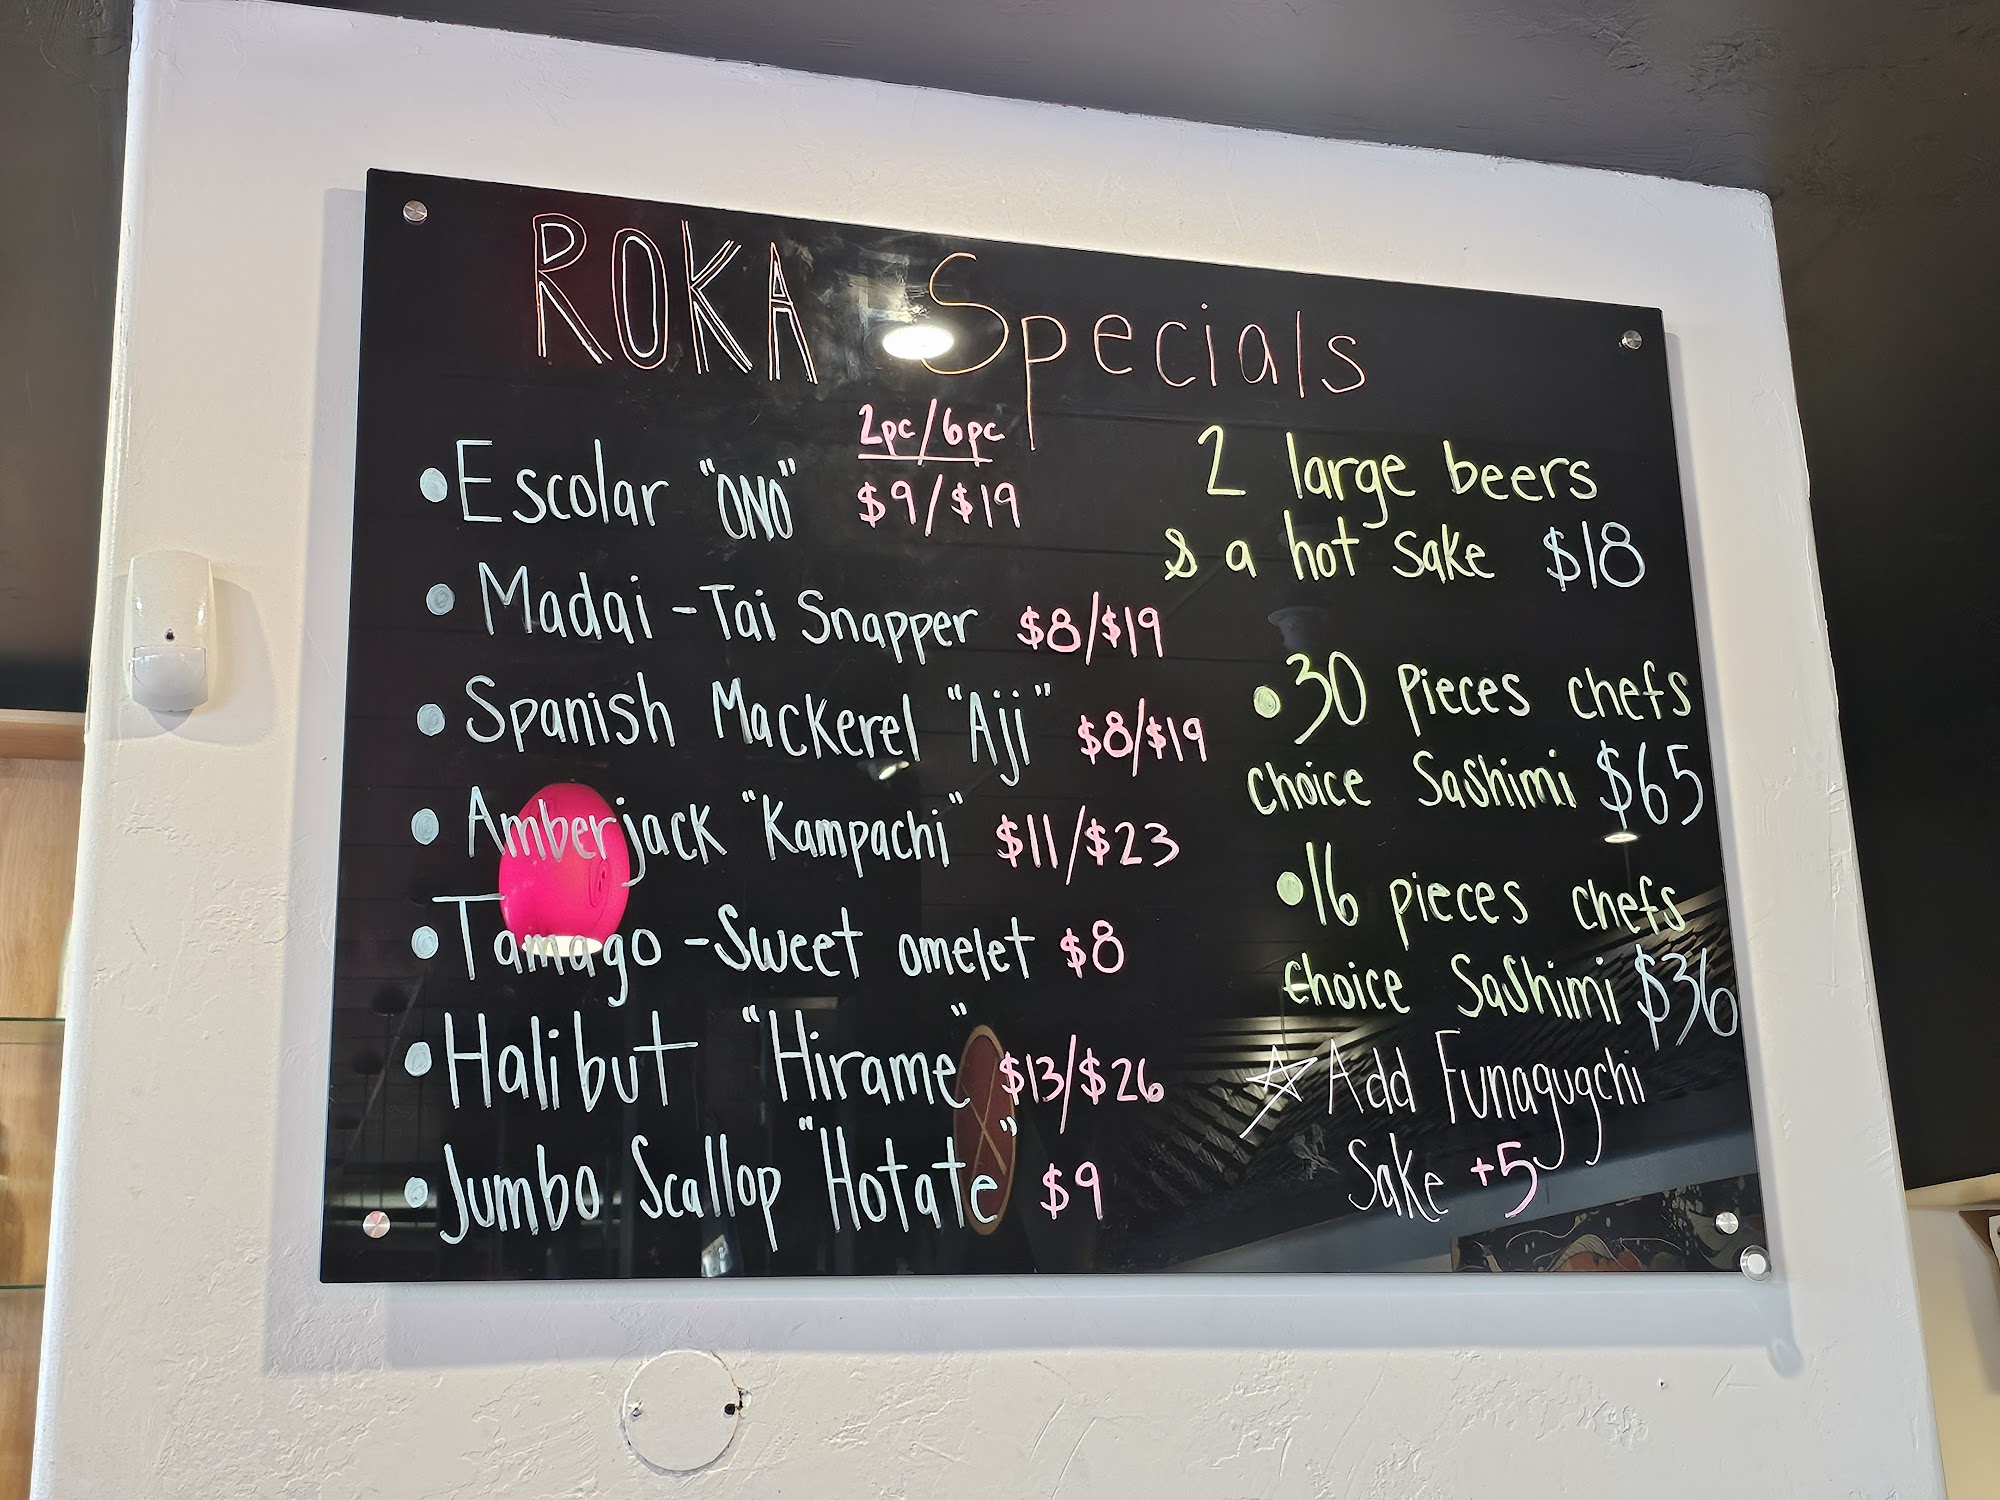 ROKA Specials
2pc/6pc
• Escolar "ONO" $9/$19
• Madai - Tai Snapper $8/$19
• Spanish Mackerel "Aji" $8/$19
• Amberjack "Kampachi" $11/$23
• Tamago - Sweet omelet $8
• Halibut "Hirame" $13/$26
• Jumbo Scallop "Hotate" $9
2 large beers
& a hot sake $18
• 30 pieces chefs
choice Sashimi $65
• 16 pieces chefs
choice Sashimi $36
☆ Add Funagugchi
Sake +5